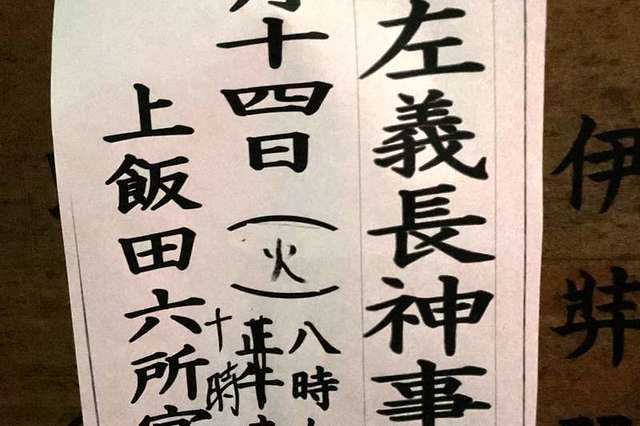 伊弉
左義長神事
月十四日(火)
八時
十時
上飯田六所宮